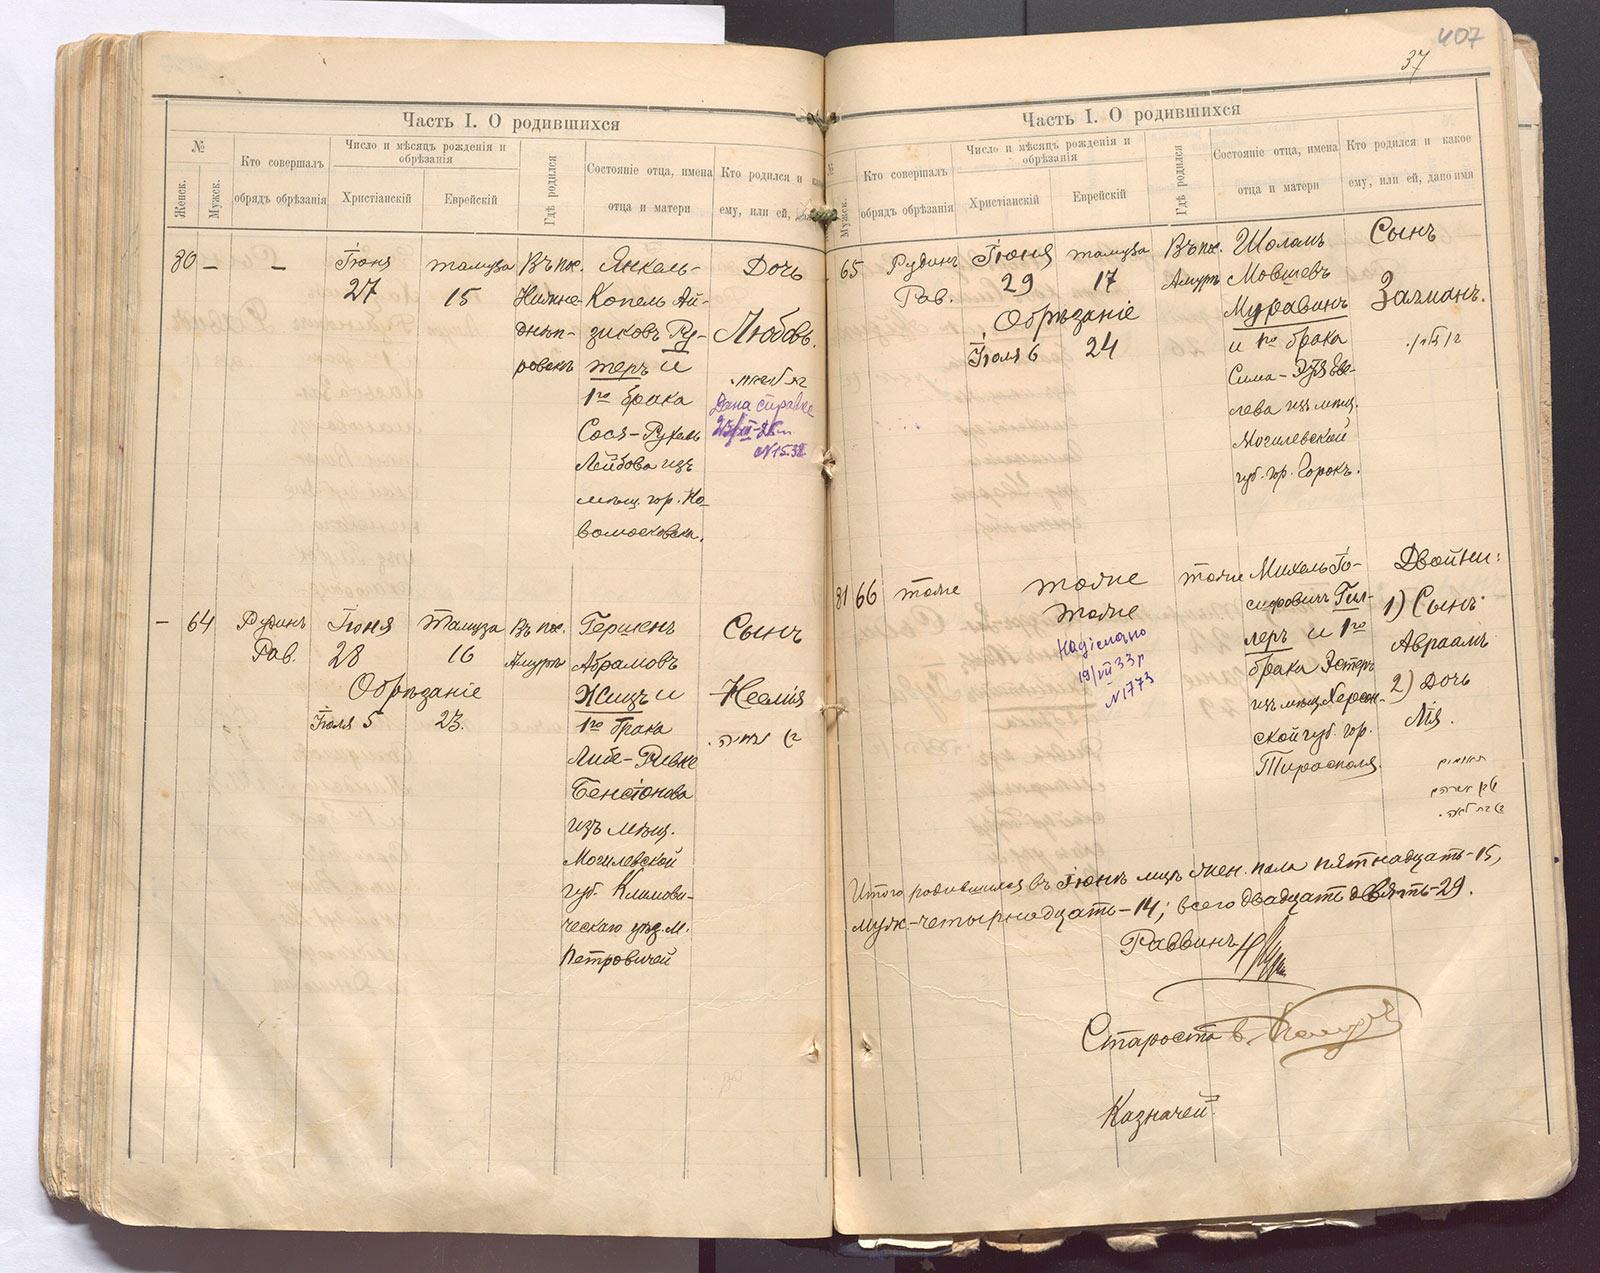 407
37
Часть I. О родившихся
№
Женск.
Мужск.
Кто совершалъ
обрядъ обрѣзанія
Число и мѣсяцъ рожденія и
обрѣзанія
Христіанскій
Еврейскій
Гдѣ родился
Состояніе отца, имена
отца и матери
Кто родился и
ему, или ей,
80 — —
Іюня
27
тамуза
15
Въ пос.
Нижне-
днѣп-
ровскъ
Янкель-
Копель Ай-
зиковъ Ру-
теръ и
1го брака
Сося-Рухель
Лейбова изъ
мѣщ. гор. Но-
вомосковска.
Дочь
Любовь.
Дана справка
№ 1532
— 64
Рудинъ
Рав.
Іюня
28
Тамуза
16
Обрѣзаніе
Іюля 5
23.
Въ пос.
Амуръ
Гершенъ
Абрамовъ
Жицъ и
1го брака
Либе-Ривке
Бенсіонова
изъ мѣщ.
Могилевской
губ. Климови-
ческаго уѣзд. м.
Петровичей
Сынъ
Хесмія
Часть I. О родившихся
№
Мужск.
Кто совершалъ
обрядъ обрѣзанія
Число и мѣсяцъ рожденія и
обрѣзанія
Христіанскій
Еврейскій
Гдѣ родился
Состояніе отца, имена
отца и матери
Кто родился и какое
ему, или ей, дано имя
65
Рудинъ
Рав.
Іюня
29
тамуза
17
Обрѣзаніе
Іюля 6
24
Въ пос.
Амуръ
Шоломъ
Мовшевъ
Муравинъ
и 1го брака
Сима-Эйдя Еве-
лева изъ мѣщ.
Могилевской
губ. гор. Горокъ.
Сынъ
Залманъ.
81 66
тоже
тоже
тоже
Надіслано
19/VII 33 р
№ 1773
тоже
Михель Іо-
сифовичъ Гил-
леръ и 1го
брака Эстеръ
изъ мѣщ. Херсон-
ской губ. гор.
Тирасполя
Двойни:
1) Сынъ
Авраамъ
2) Дочь
Лія.
תאומים
Итого родившихся въ Іюнѣ мцѣ жен. пола пятнадцать-15,
муж-четырнадцать-14; всего двадцать девять-29.
Раввинъ
Староста
Казначей